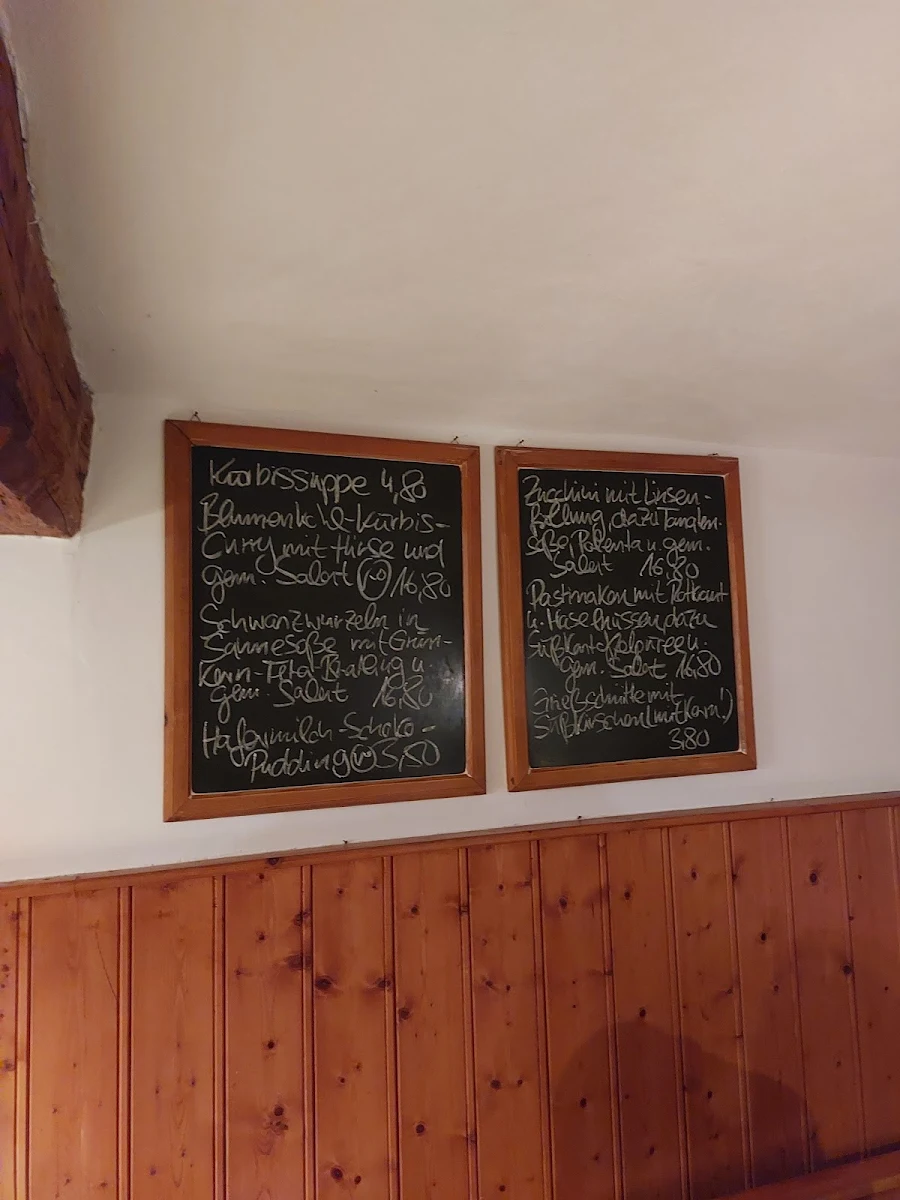 Kürbissuppe 4,80
Blumenkohl-Kürbis-
Curry mit Hirse und
gem. Salat Ⓥ 16,80
Schwarzwurzeln in
Sahnesoße mit Grün-
kern-Feta Bratling u.
gem. Salat 16,80
Hafermilch-Schoko-
Pudding Ⓥ 3,50
Zucchini mit Linsen-
füllung, dazu Tomaten-
soße, Polenta u. gem.
Salat 16,80
Pastinaken mit Rotkraut
u. Haselnüssen, dazu
Süßkartoffelpüree u.
gem. Salat 16,80
Grießschnitte mit
Süßkirschen (mit Kern!)
3,80